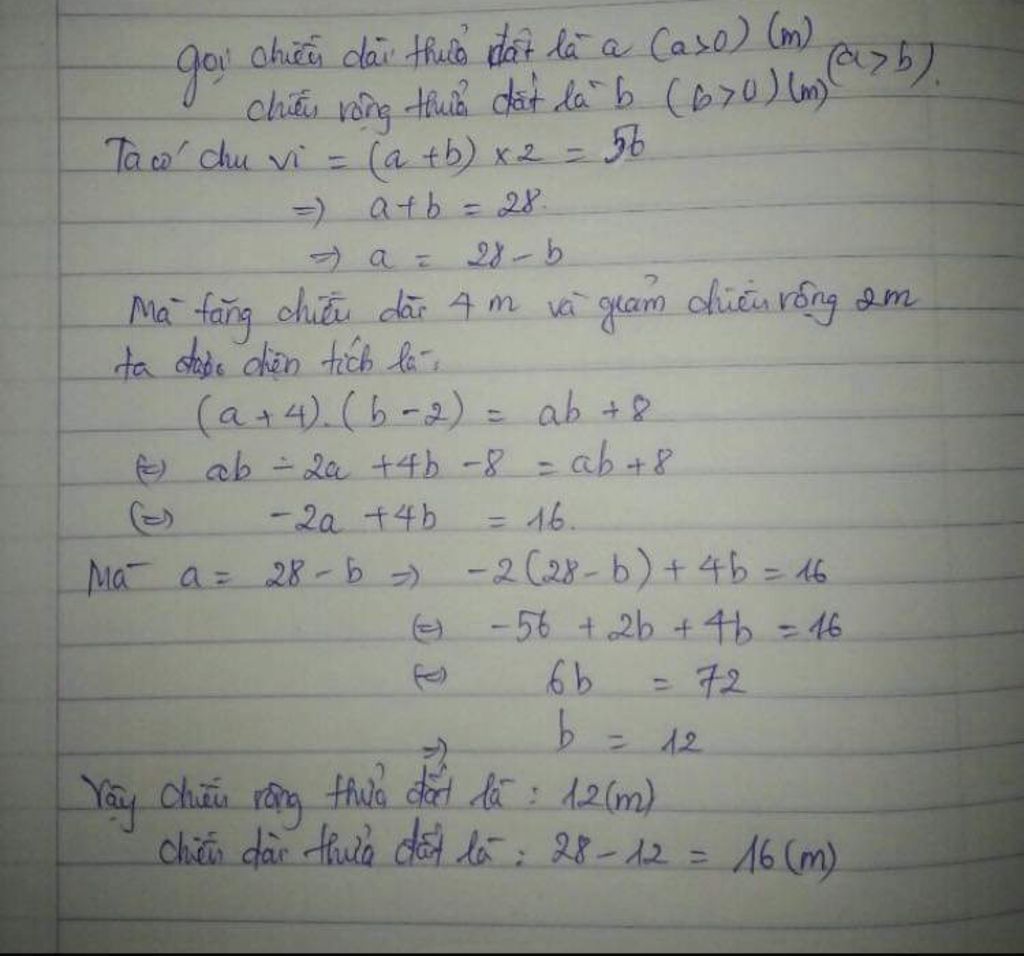 Gọi chiều dài thửa đất là a (a>0) (m)
chiều rộng thửa đất là b (b>0) (m) (a>b).
Ta có chu vi = (a+b) × 2 = 56
=> a+b = 28.
=> a = 28 - b
Mà tăng chiều dài 4 m và giảm chiều rộng 2m
ta được diện tích là:
(a+4).(b-2) = ab + 8
<=> ab - 2a + 4b - 8 = ab + 8
<=> -2a + 4b = 16.
Mà a = 28 - b => -2(28-b) + 4b = 16
<=> -56 + 2b + 4b = 16
<=> 6b = 72
=> b = 12
Vậy chiều rộng thửa đất là : 12(m)
chiều dài thửa đất là : 28 - 12 = 16(m)